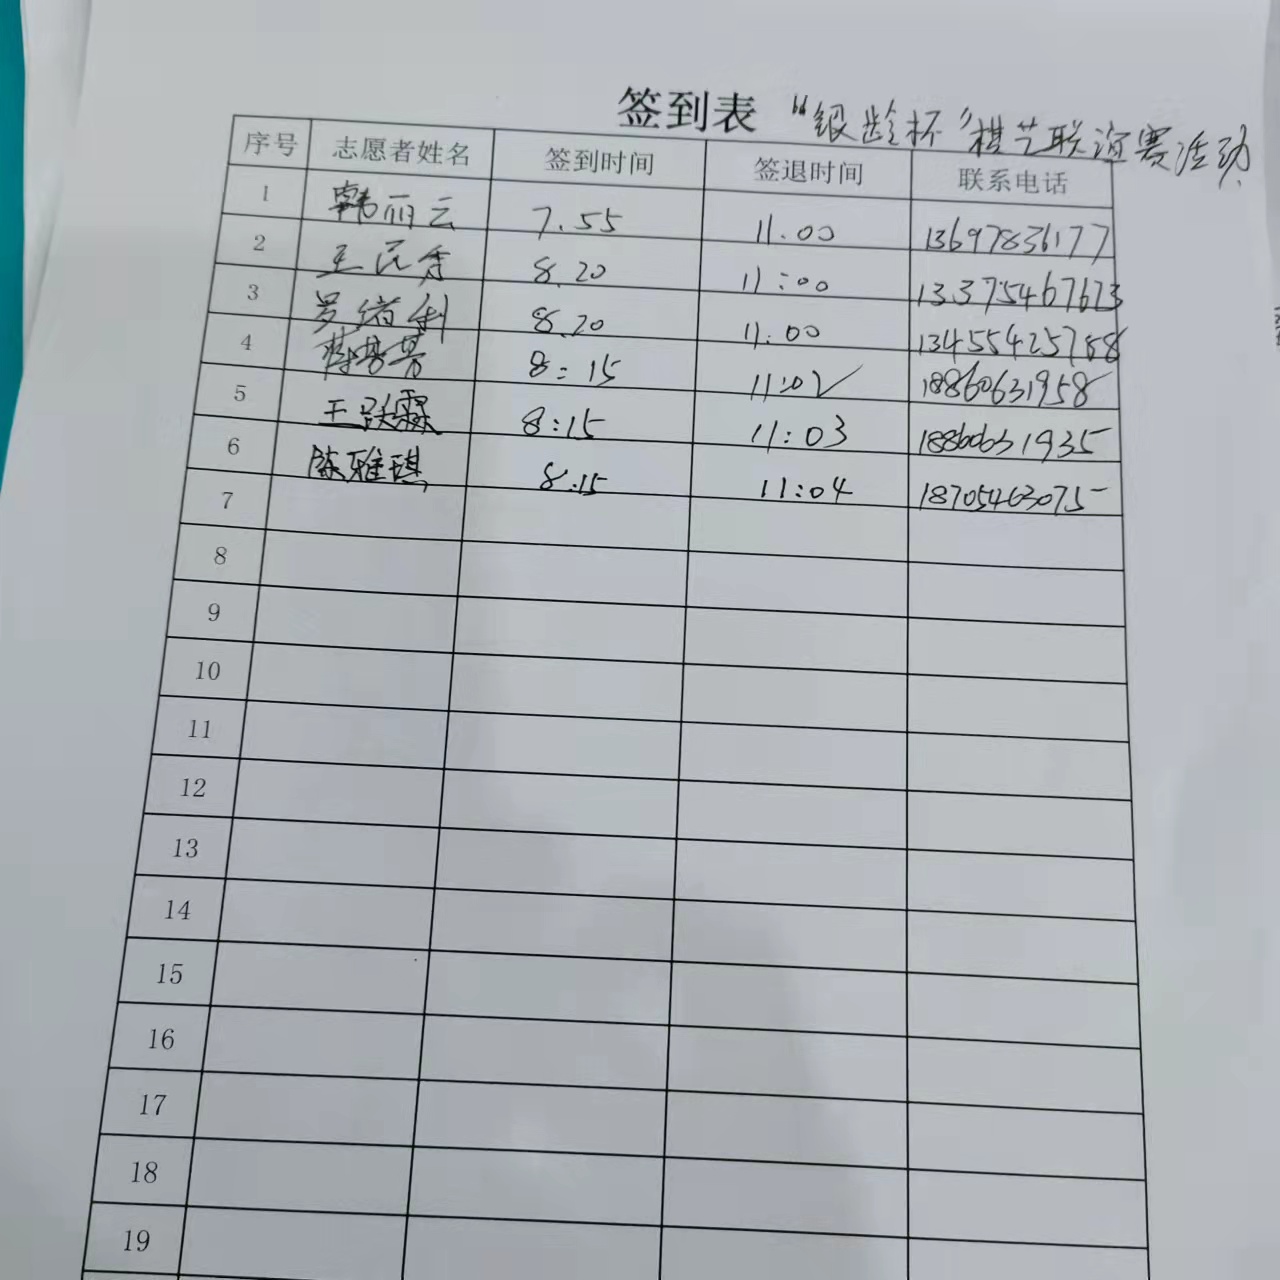 签到表 “银龄杯”棋艺联谊赛活动
序号 志愿者姓名 签到时间 签退时间 联系电话
1 韩丽云 7.55 11.00 13697836177
2 8.20 11:00 13375467673
3 8.20 11:00 13455425788
4 8:15 11:02 18860631958
5 8:15 11:03 18860631935
6 陈雅琪 8:15 11:04 18705463075
7
8
9
10
11
12
13
14
15
16
17
18
19